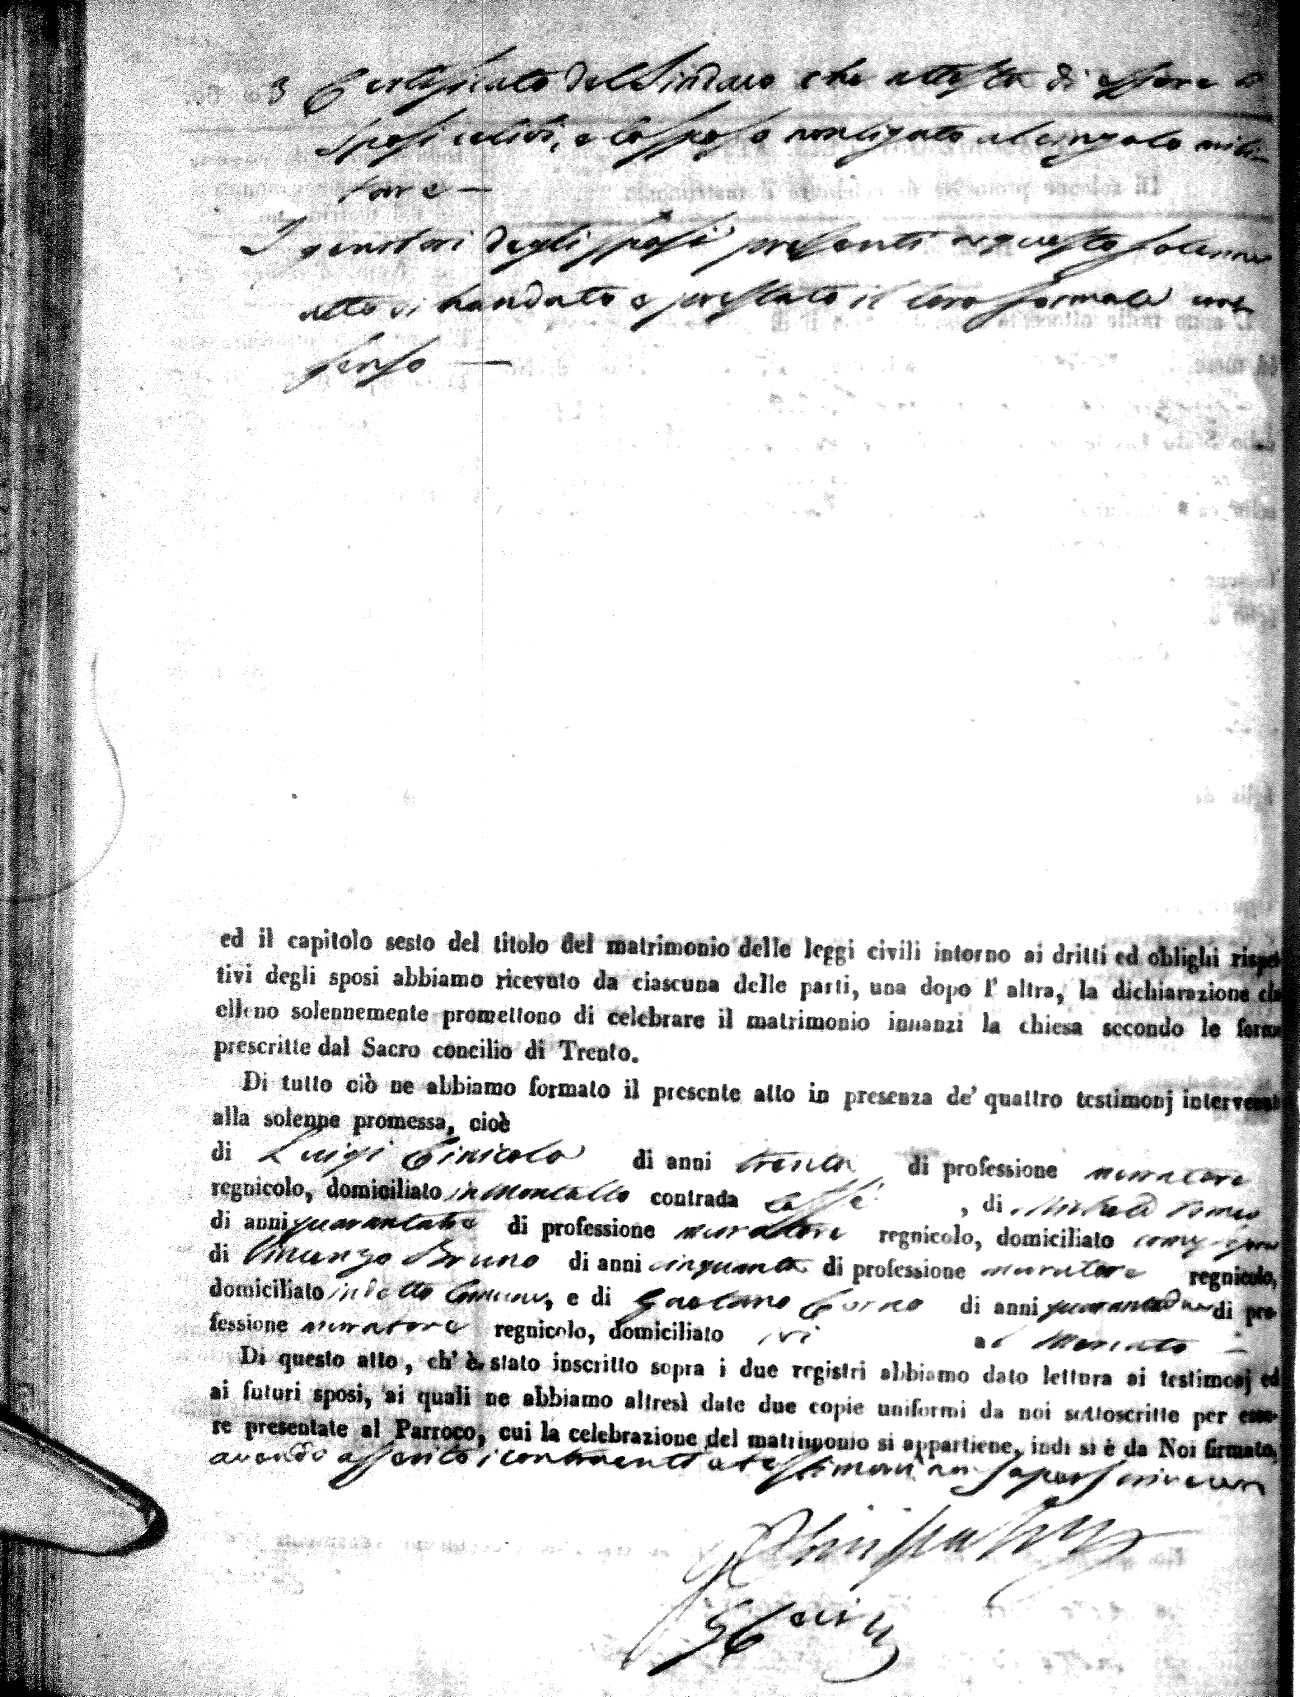 3 Certificato del Sindaco che attesta di essere
sposi celibi, e lo sposo non ligato al cingolo mili-
tare —
I genitori degli sposi presenti a questo solenne
atto vi handato e prestato il loro formale con
senso —
ed il capitolo sesto del titolo del matrimonio delle leggi civili intorno ai dritti ed oblighi rispet
tivi degli sposi abbiamo ricevuto da ciascuna delle parti, una dopo l' altra, la dichiarazione che
elleno solennemente promettono di celebrare il matrimonio innanzi la chiesa secondo le forme
prescritte dal Sacro concilio di Trento.
Di tutto ciò ne abbiamo formato il presente atto in presenza de' quattro testimonj intervenuti
alla solenne promessa, cioè
di Luigi Cinicola di anni trenta di professione muratore
regnicolo, domiciliato in Montalto contrada , di
di anni quarantatre di professione muratore regnicolo, domiciliato come sopra
di Vincenzo Bruno di anni cinquanta di professione muratore regnicolo,
domiciliato in detto Comune, e di Gaetano di anni di pro-
fessione muratore regnicolo, domiciliato ivi al Mercato —
Di questo atto, ch' è stato inscritto sopra i due registri abbiamo dato lettura ai testimonj ed
ai futuri sposi, ai quali ne abbiamo altresì date due copie uniformi da noi sottoscritte per esse-
re presentate al Parroco, cui la celebrazione del matrimonio si appartiene, indi si è da Noi firmato,
avendo asserito i contraenti e testimoni non saper scrivere